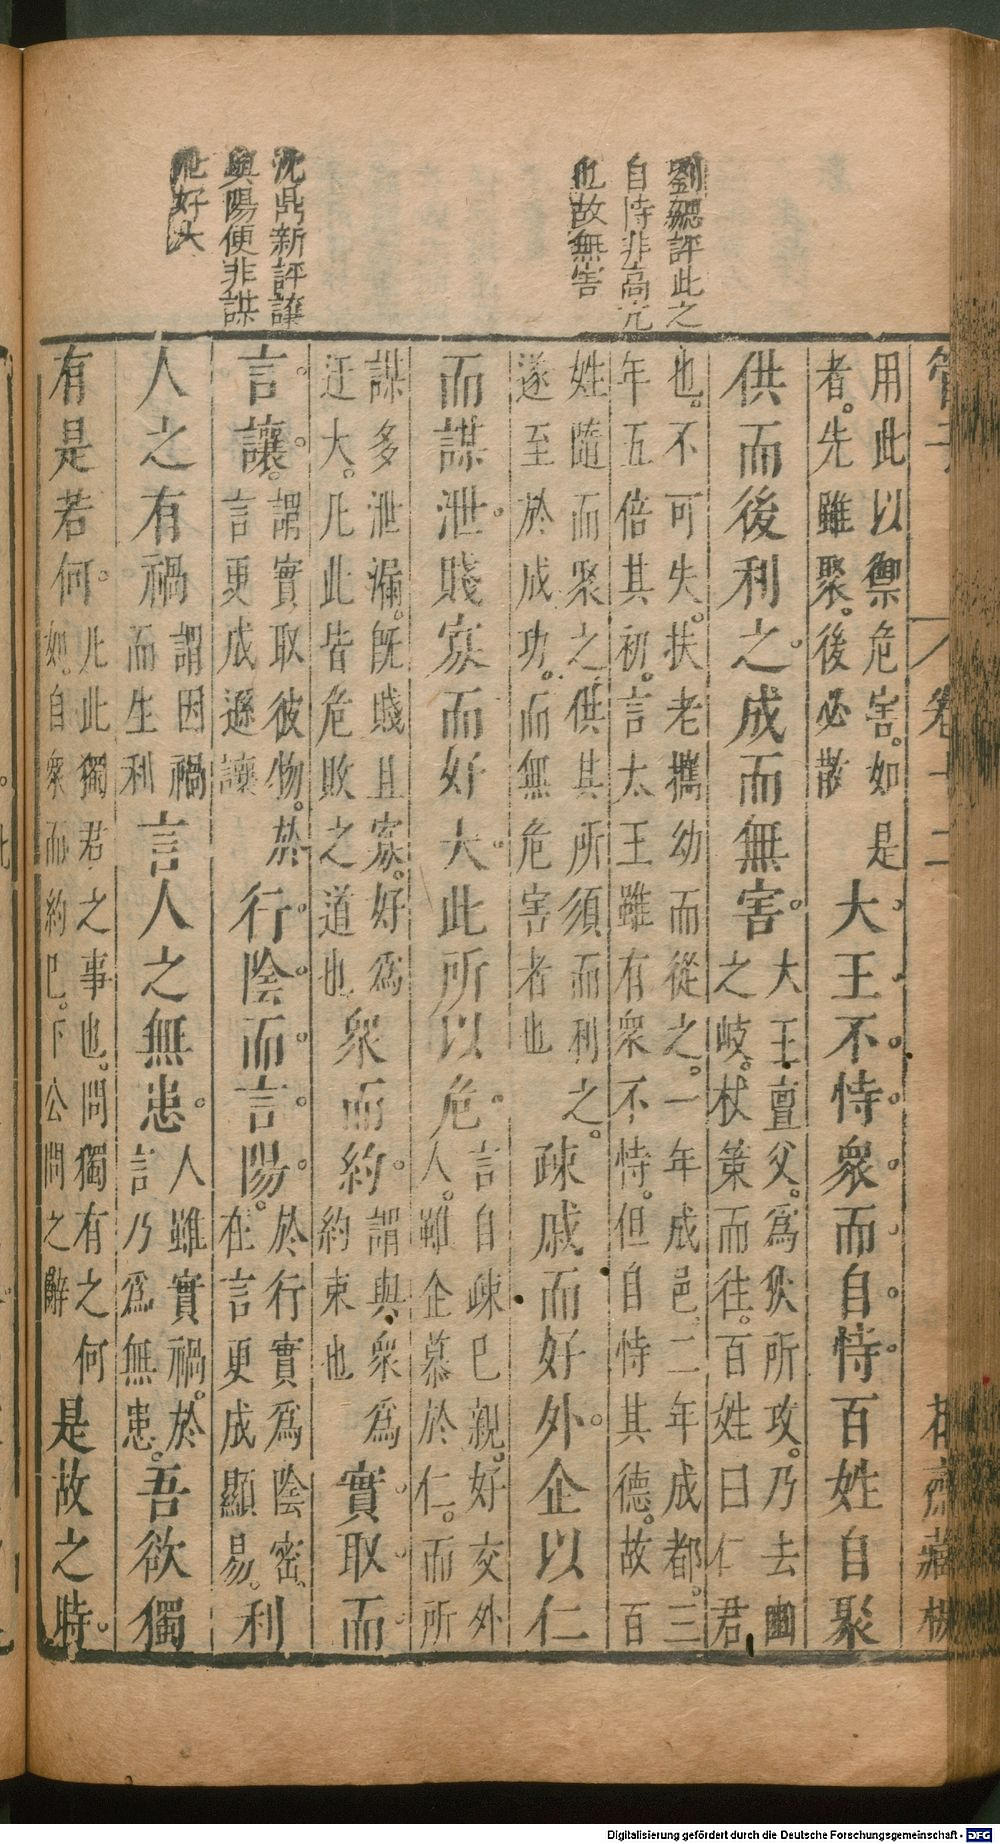 劉勰評此之
自恃非高亢
也故無害
沈鼎新評讓
與陽便非謀
泄好大
管子 卷十二 花齋藏板
用此以禦危害。如是
者。先雖聚。後必散
大王不恃衆而自恃百姓自聚
供而後利之。成而無害。
大王亶父。爲狄所攻。乃去豳
之岐。杖策而往。百姓曰仁君
也。不可失。扶老攜幼而從之。一年成邑。二年成都。三
年五倍其初。言太王雖有衆不恃。但自恃其德。故百
姓隨而聚之。供其所須而利之。
遂至於成功。而無危害者也
疎戚而好外。企以仁
而謀泄。賤寡而好大。此所以危。
言自疎已親。好交外
人。雖企慕於仁。而所
謀多泄漏。既賤且寡。好爲
迂大。凡此皆危敗之道也
衆而約。
謂與衆爲
約束也
實取而
言讓。
謂實取彼物。於
言更成遜讓
行陰而言陽。
於行實爲陰密。
在言更成顯易。
利
人之有禍
謂因禍
而生利
言人之無患。
人雖實禍。於
言乃爲無患。
吾欲獨
有是若何。
凡此獨君之事也。問獨有之何
如。自衆而約已。下公問之辭
是故之時。
Digitalisierung gefördert durch die Deutsche Forschungsgemeinschaft - DFG